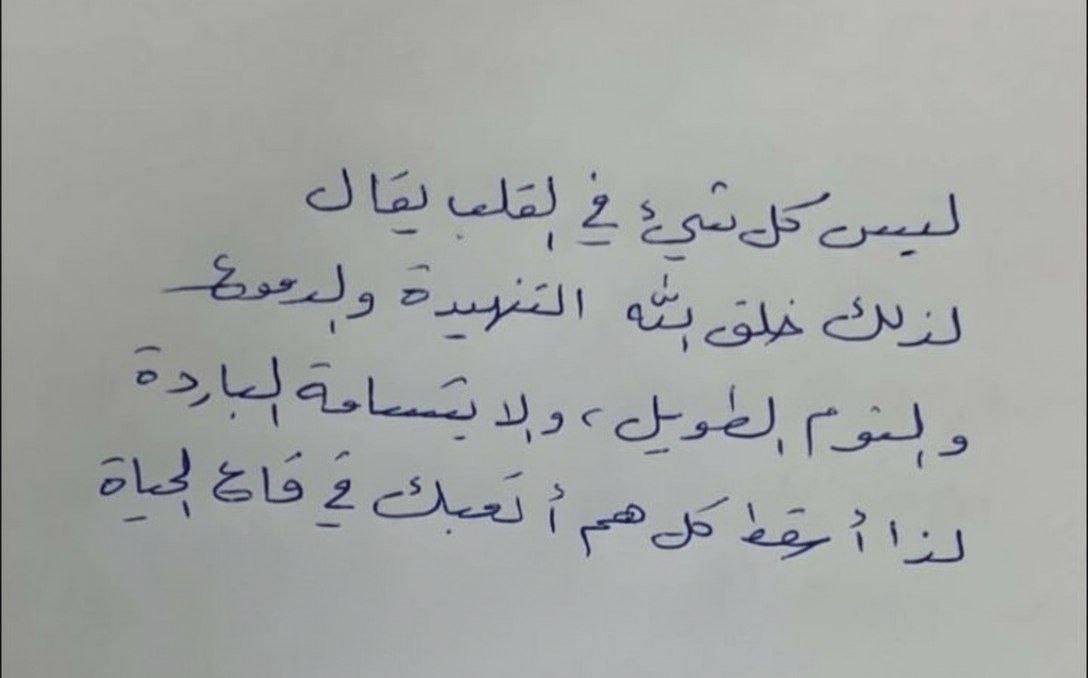 ليس كل شيئ في القلب يقال
لذلك خلق الله التنهيدة والدموع
والنوم الطويل، والابتسامة الباردة
لذا أسقط كل هم أتعبك في قاع الحياة